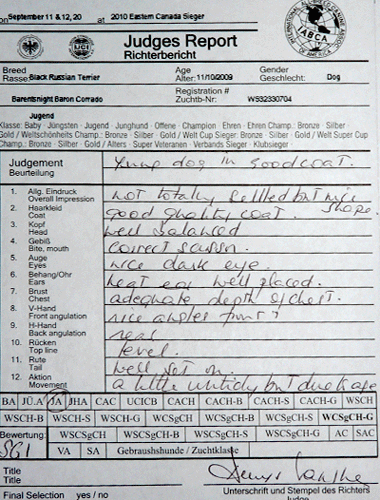 on September 11 & 12, 20 at 2010 Eastern Canada Sieger
UCI
Judges Report
Richterbericht
INTERNATIONAL ALL CANINE ASSOC. OF AMERICA
IABCA
Breed
Rasse: Black Russian Terrier
Age
Alter: 11/10/2009
Gender
Geschlecht: Dog
Registration #
Zuchtb-Nr: WS32330704
Barentsnight Baron Corrado
Jugend
Klasse: Baby · Jüngsten · Jugend · Junghund · Offene · Champion · Ehren · Ehren Champ.: Bronze · Silber ·
Gold / Weltschönheits Champ.: Bronze · Silber · Gold / Welt Cup Sieger: Bronze · Silber · Gold / Welt Super Cup
Champ.: Bronze · Silber · Gold / Alters · Super Veteranen · Verbands Sieger · Klubsieger ·
Judgement
Beurteilung
Young dog in good coat.
1. Allg. Eindruck
Overall Impression
not totally settled but nice shape.
2. Haarkleid
Coat
good quality coat.
3. Kopf
Head
well balanced
4. Gebiß
Bite, mouth
correct scissor.
5. Auge
Eyes
nice dark eye.
6. Behang/Ohr
Ears
neat ear well placed.
7. Brust
Chest
adequate depth of chest.
8. V-Hand
Front angulation
nice angles front &
9. H-Hand
Back angulation
rear
10. Rücken
Top line
level.
11. Rute
Tail
well set on.
12. Aktion
Movement
a little untidy but due to age
BA JÜ.A JA JHA CAC UCICB CACH CACH-B CACH-S CACH-G WSCH
WSCH-B WSCH-S WSCH-G WCSgCH WCSgCH-B WCSgCH-S WCSgCH-G
Bewertung: WSCSgCH WSCSgCH-B WSCSgCH-S WSCSgCH-G AC SAC
SG1 VA SA Gebraushunde / Zuchtklasse
Title
Title
Final Selection yes / no
Judge
Unterschrift und Stempel des Richters